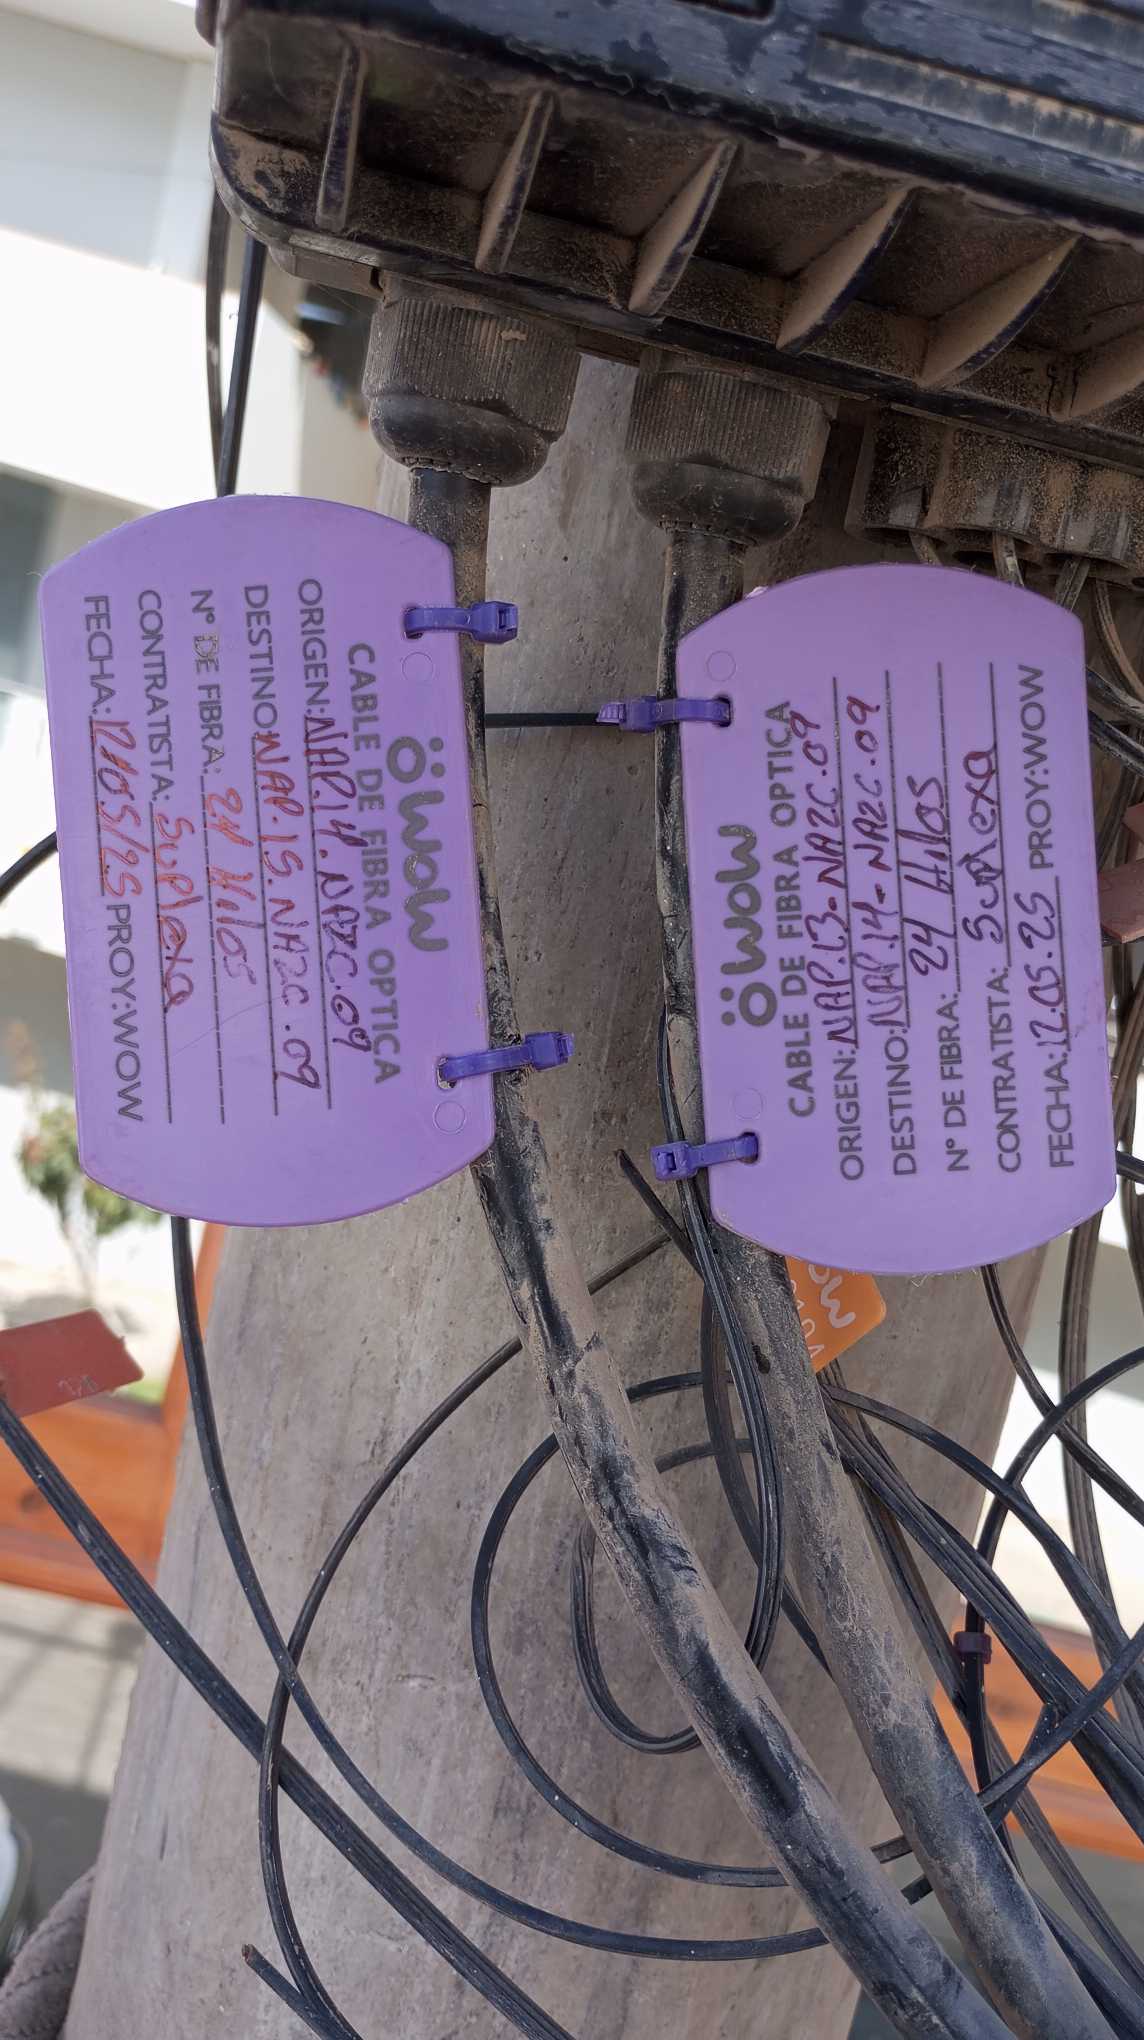 WOW
CABLE DE FIBRA OPTICA
ORIGEN: NAP.14.NA2C.09
DESTINO: NAP.15.NA2C.09
N° DE FIBRA: 24 Hilos
CONTRATISTA: Suplexa
FECHA: 12/05/25 PROY:WOW
WOW
CABLE DE FIBRA OPTICA
ORIGEN: NAP.13-NA2C.09
DESTINO: NAP.14-NA2C.09
N° DE FIBRA: 24 Hilos
CONTRATISTA: Suplexa
FECHA: 12.05.25 PROY:WOW